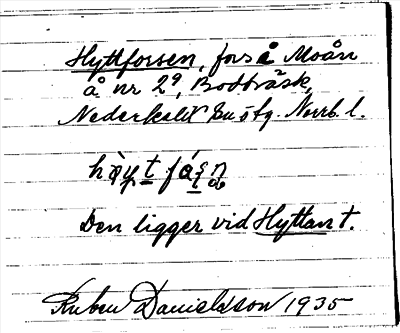 Hyttforsen, fors i Moån
å nr 29, Bodträsk,
Nederkalix
Norrb. l.
Den ligger vid Hyttan 1.
Ruben Danielsson 1935